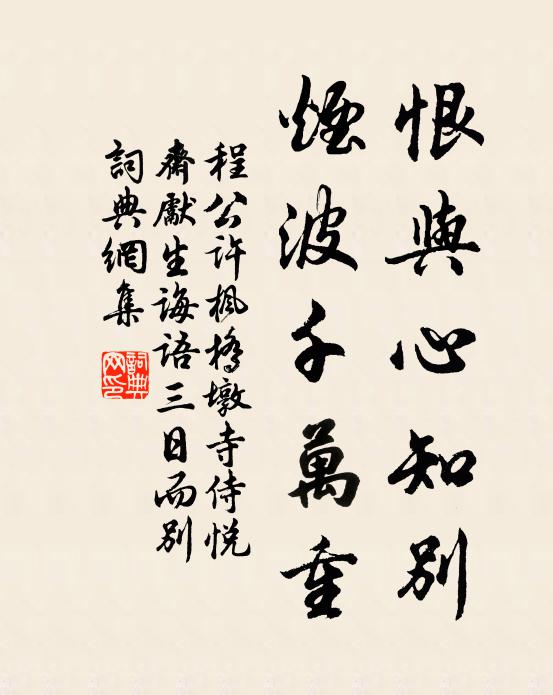 恨與心知別
煙波千萬重
程公許楓橋墩寺侍悅
齋獻生誨語三日而別
詞典網集
詞典
网印